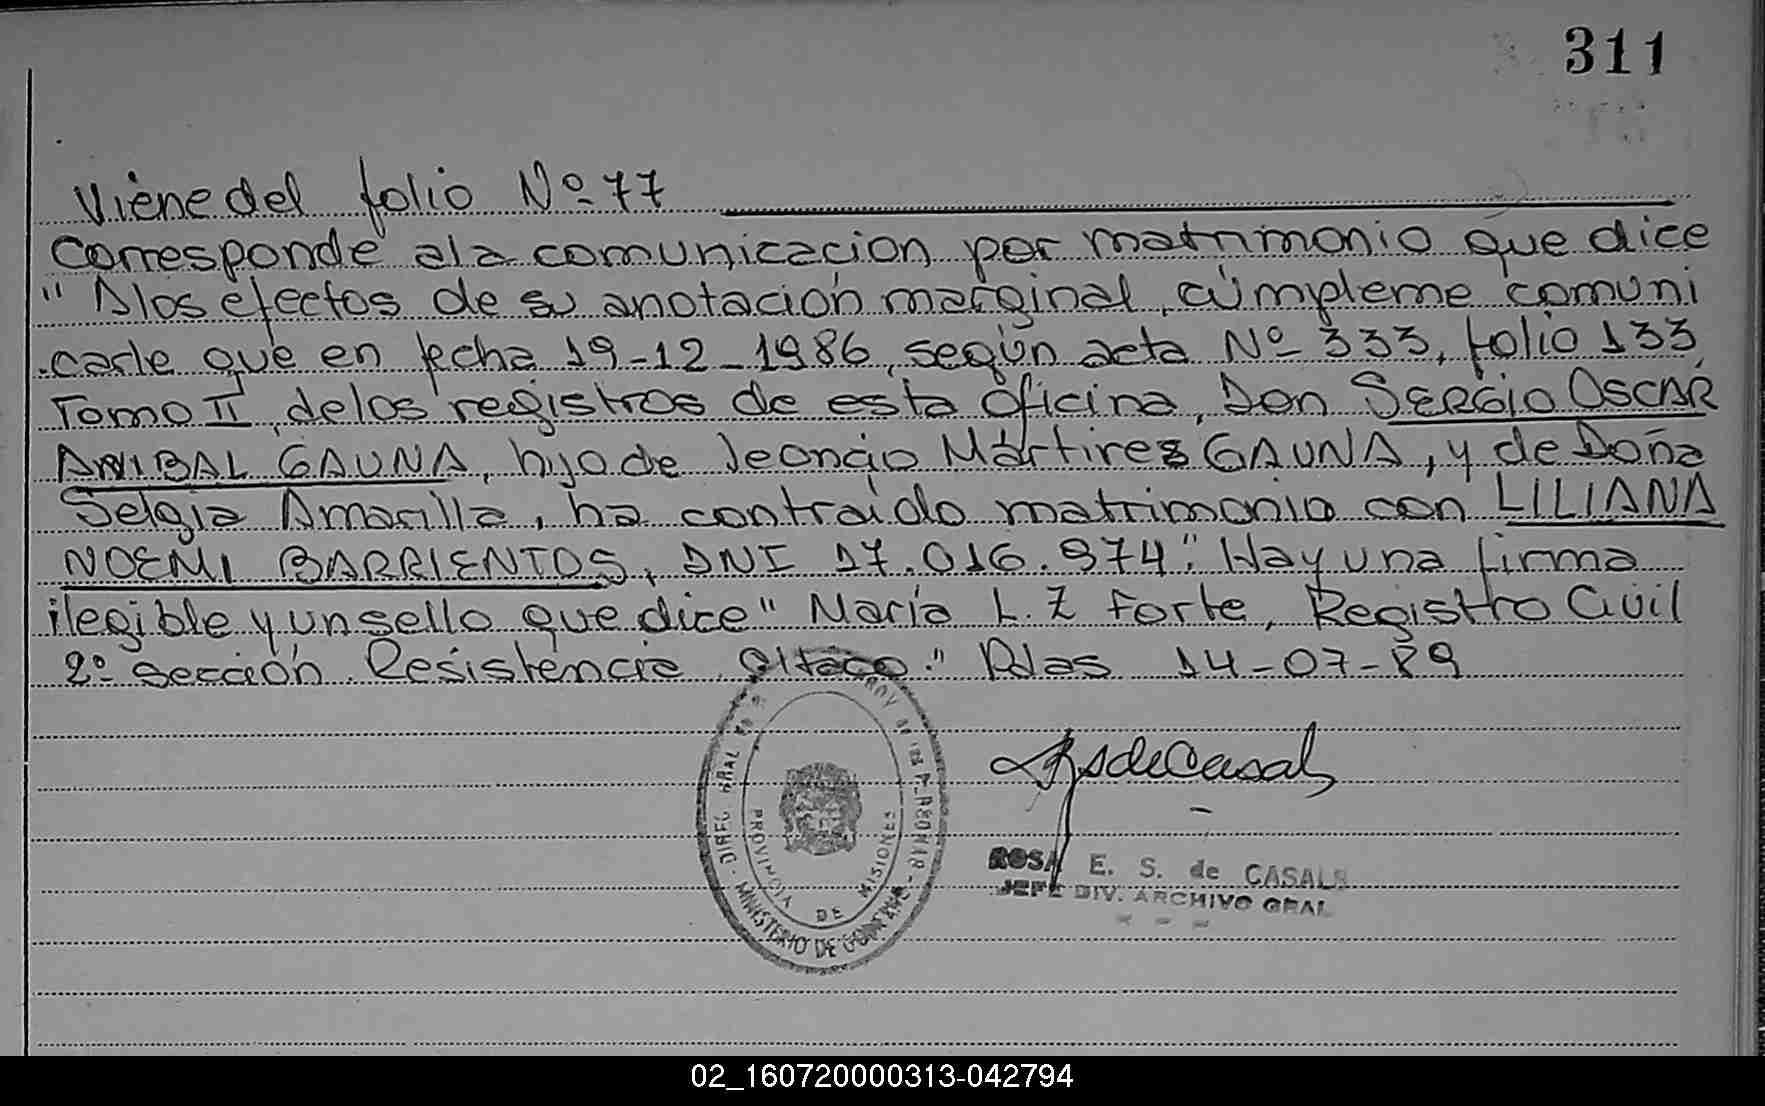 311
Viene del folio Nº 77
Corresponde a la comunicacion por matrimonio que dice
"A los efectos de su anotación marginal, cúmpleme comuni
carle que en fecha 19-12-1986, según acta Nº 333, folio 133
Tomo II, de los registros de esta oficina, Don SERGIO OSCAR
ANIBAL GAUNA, hijo de Leoncio Mártires GAUNA, y de Doña
Selgia Amarilla, ha contraído matrimonio con LILIANA
NOEMI BARRIENTOS, DNI 17.016.974". Hay una firma
ilegible y un sello que dice "María L. Z Forte, Registro Civil
2º sección Resistencia Chaco." Pdas 14-07-89
PROVINCIA DE MISIONES
MINISTERIO DE GOBIERNO
ROSA E. S. de CASALS
JEFE DIV. ARCHIVO GRAL
02_160720000313-042794